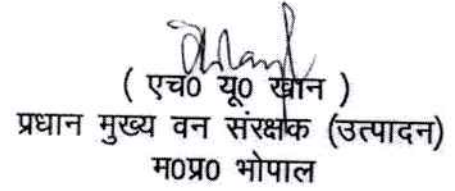 ( एच० यू० खान )
प्रधान मुख्य वन संरक्षक (उत्पादन)
म०प्र० भोपाल